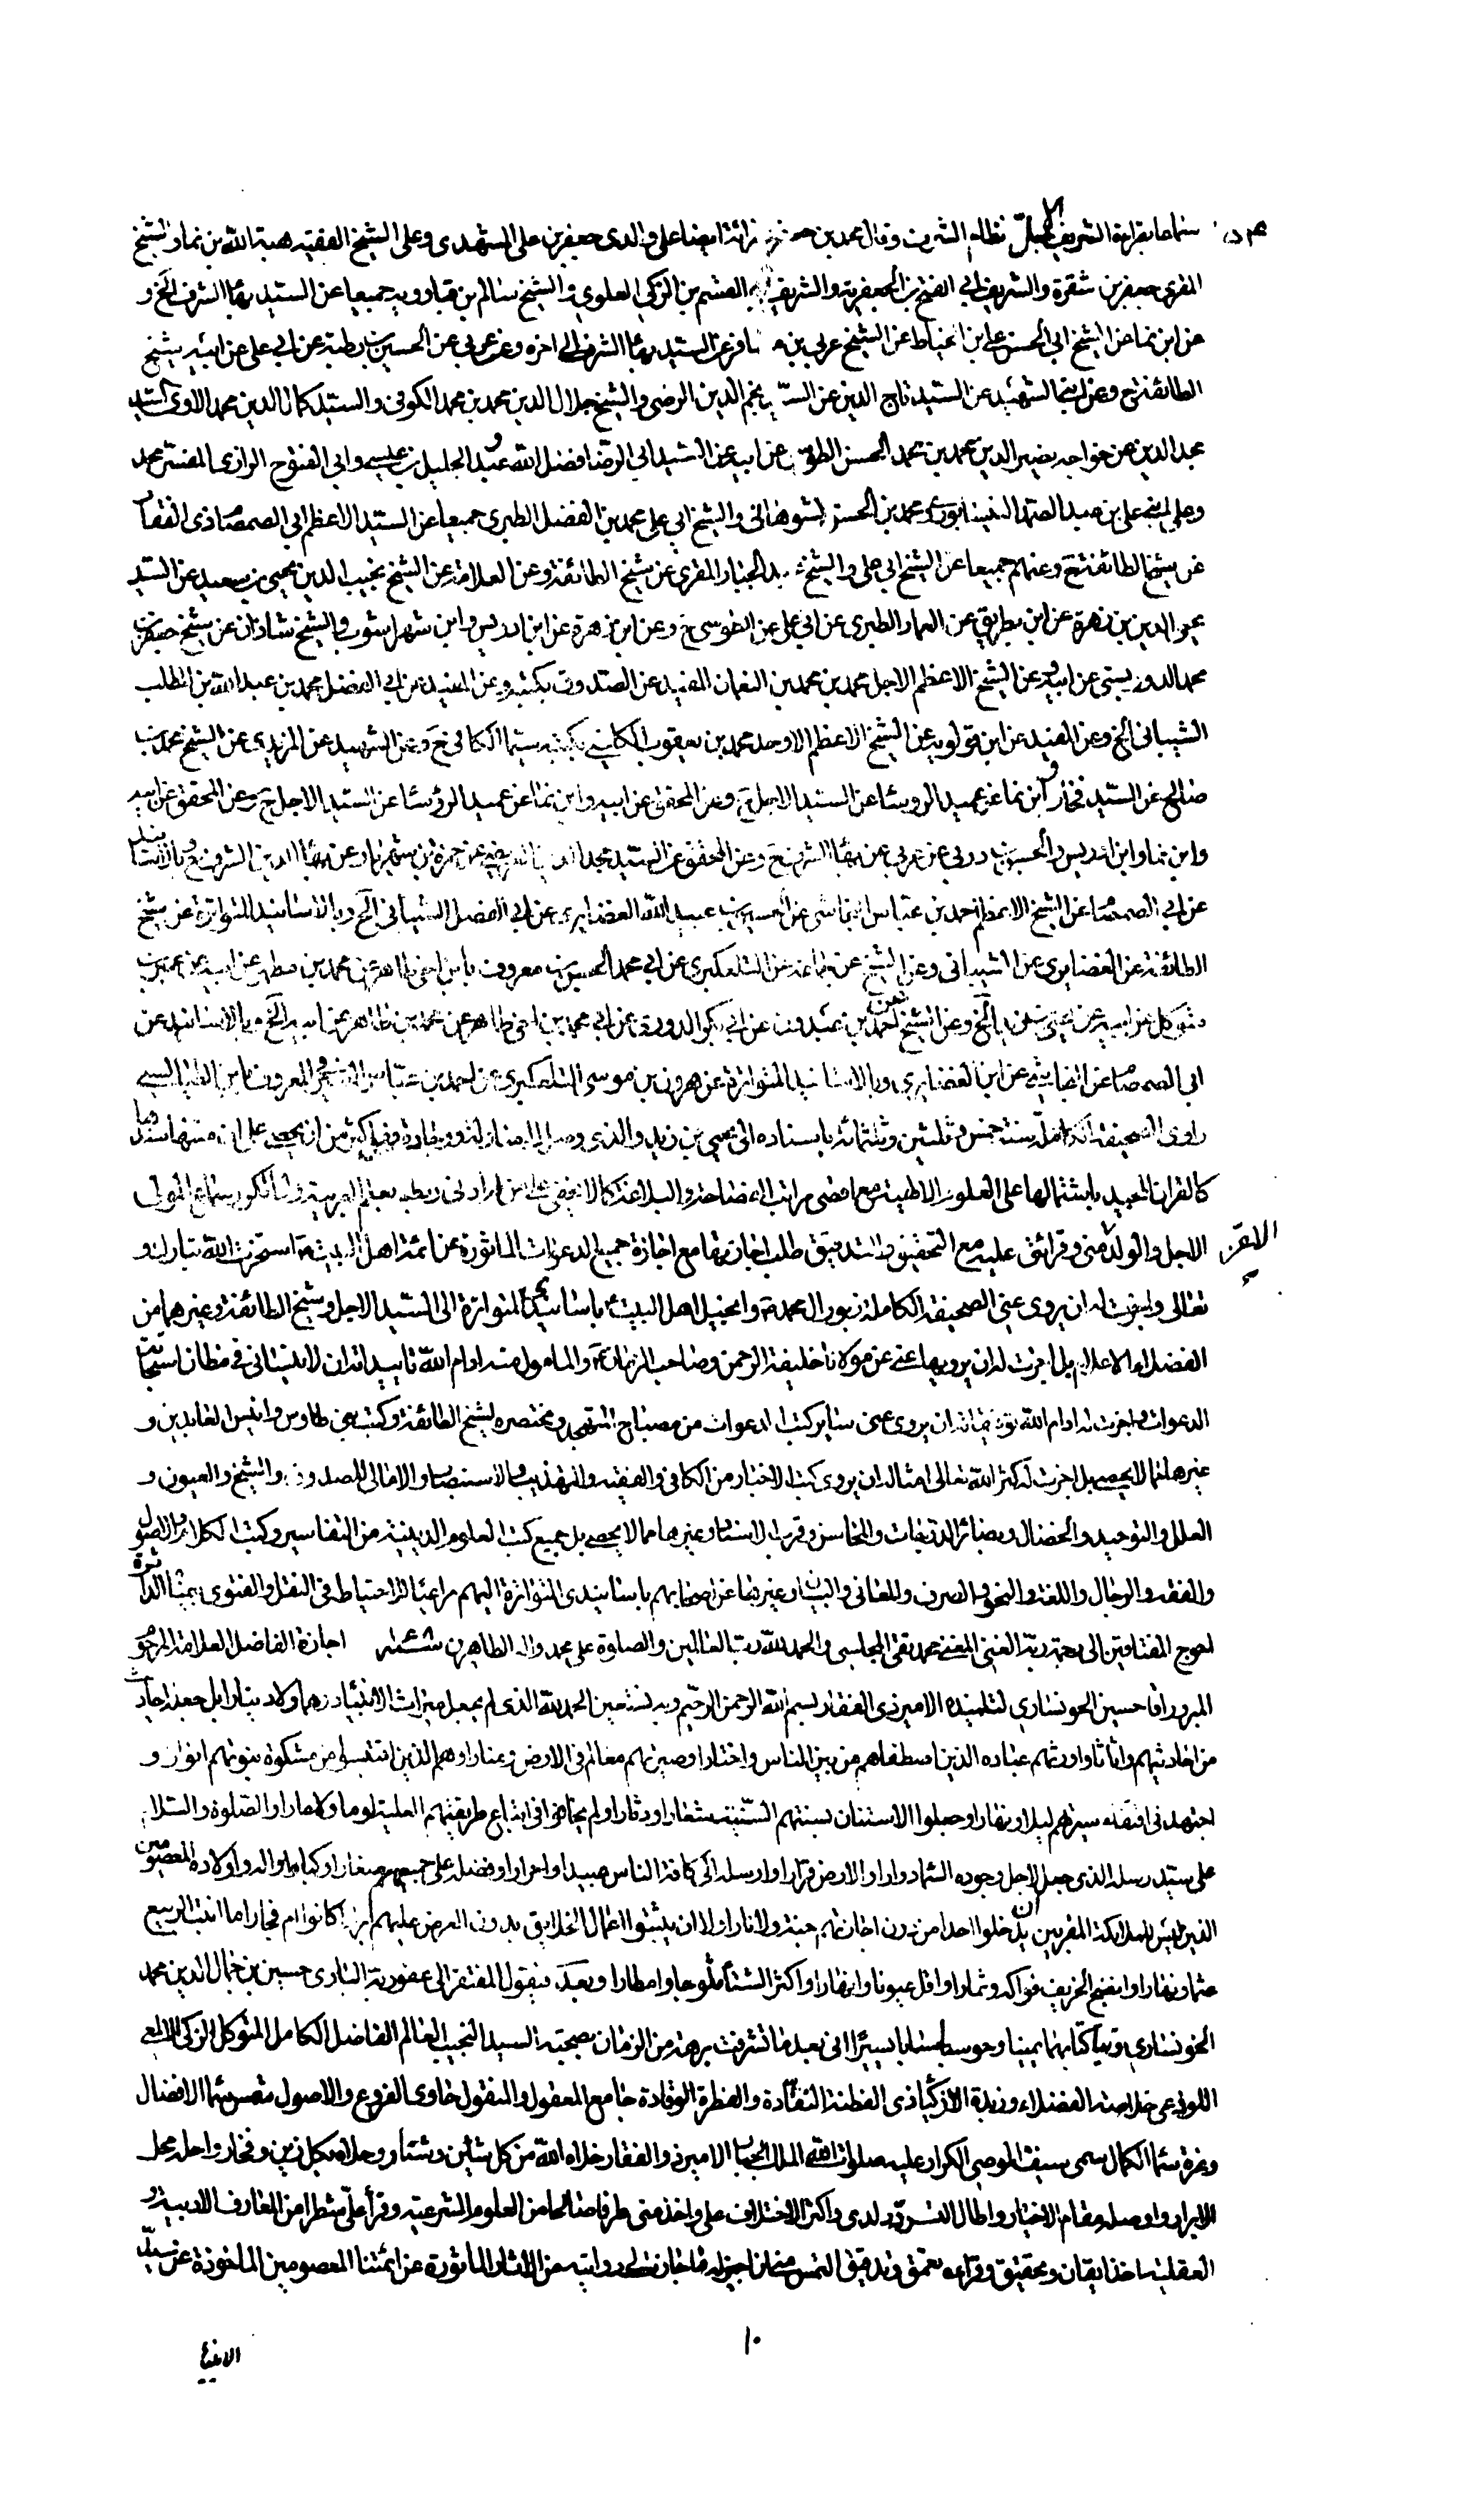 سماعا بقراءة الشريف الاجل نظام الشرف وقال محمد بن جعفر قرائة ايضا على والدى جعفر بن على المشهدى وعلى الشيخ الفقيه هبة الله بن نما والشيخ
المقرى جعفر بن شقرة والشريف ابى الفتح بن الجعفرية والشريف القسم بن الزكى العلوى والشيخ سالم بن قبارويه جميعا عن السيد بهاء الشرف الخ و
عن ابن نما عن الشيخ ابى الحسن على ابن الخياط عن الشيخ عربى بن مسافر عن السيد بهاء الشرف الى اخره وعن عربى عن الحسين بن رطبة عن ابى على عن ابيه شيخ
الطائفة ح وعن الشهيد عن السيد تاج الدين عن السيد نجم الدين الرضى والشيخ جلال الدين محمد بن محمد الكوفى والسيد كمال الدين محمد الاوى السيد
مجد الدين عن خواجه نصير الدين محمد بن محمد الحسن الطوسى عن ابيه عن السيد ابى الرضا فضل الله وعبد الجليل بن عيسى وابى الفتوح الرازى المفسر محمد
وعلى ابنى على بن عبد الصمد النيسابورى ومحمد بن الحسن الشوهانى والشيخ ابى على محمد بن الفضل الطبرى جميعا عن السيد الاعظم ابى الصمصام ذى الفقار
عن شيخ الطائفة ح وعنهم جميعا عن الشيخ ابى على والشيخ عبد الجبار المقرى عن شيخ الطائفة وعن العلامة عن الشيخ نجيب الدين يحيى بن سعيد عن السيد
محيى الدين بن زهرة عن ابن بطريق عن العماد الطبرى عن ابى على عن الطوسى ح وعن ابن زهرة عن ابن ادريس وابن شهراشوب والشيخ شاذان عن شيخ جعفر بن
محمد الدوريستى عن ابيه عن الشيخ الاعظم الاجل محمد بن محمد بن النعمان المفيد عن الصدوق بكتبه وعن المفيد عن ابى المفضل محمد بن عبد الله بن المطلب
الشيبانى الخ وعن المفيد عن ابن قولويه عن الشيخ الاعظم الاوحد محمد بن يعقوب الكلينى بكتبه سيما الكافى ح وعن الشهيد عن المزيدى عن الشيخ محمد بن
صالح عن السيد فخار وابن نما عن عميد الرؤسا عن السيد الاجل ح وعن المحقق عن ابيه وابن نما عن عميد الرؤسا عن السيد الاجل ح وعن المحقق عن ابيه
وابن نما وابن ادريس والحسن بن دربى عن عربى عن بهاء الشرف ح وعن المحقق عن السيد مجد الدين العريضى عن حمزة بن شهريار عن بهاء الدين الشرف ح وبالاسانيد
عن ابى الصمصام عن الشيخ الاعظم احمد بن عباس النجاشى عن الحسين بن عبيد الله الغضايرى عن ابى المفضل الشيبانى الخ وبالاسانيد المتواترة عن شيخ
الطائفة عن الغضايرى عن الشيبانى وعن الشيخ عن جماعة عن التلعكبرى عن ابى محمد الحسن بن معروف بابن اخى طاهر عن محمد بن مطهر عن ابيه عن عمير بن
متوكل عن ابيه عن يحيى بن زيد الخ وعن الشيخ عن احمد بن عبدون عن ابى بكر الدورى عن ابى محمد بن اخى طاهر عن محمد بن مطهر عن ابيه الخ وبالاسانيد عن
ابى الصمصام عن النجاشى عن ابن الغضايرى وبالاسانيد المتواترة عن هرون بن موسى التلعكبرى عن احمد بن عباس الصيرفى المعروف بابن الطيالسى
راوى الصحيفة الكاملة سنة خمس وثلثين وثلثمائة باسناده الى يحيى بن زيد والذى وصل الى
كالقران المجيد باشتمالها على العلوم الالهية مع اقصى مراتب الفصاحة والبلاغة كما لا يخفى على من ادنى ربط بعلم العربية
الاجل والولد منى وقرائتى عليه مع التحقيق والتدقيق طلب اجازتها مع اجازة جميع الدعوات الماثورة عن ائمة اهل البيت استخرت الله تبارك و
الاتقى
تعالى واجزت له ان يروى عنى الصحيفة الكاملة زبور ال محمد وانجيل اهل البيت باسانيدى المتواترة الى السيد الاجل وشيخ الطائفة وغيرهما من
الفضلاء الاعلام بل اجزت له ان يرويها عنى عن مولانا خليفة الرحمن وصاحب الزمان والمامول منه ادام الله تاييداته ان لا ينسانى فى مظان استجابة
الدعوات واجزت له ادام الله توفيقاته ان يروى عنى ساير كتب الدعوات من مصباح المتهجد ومختصره لشيخ الطائفة وكتب بنى طاوس وانيس العابدين و
غيرها مما لا يحصى بل اجزت له كثر الله تعالى امثاله ان يروى كتب الاخبار من الكافى والفقيه والتهذيب والاستبصار والامالى للصدوق والشيخ والعيون و
العلل والتوحيد والخصال وبصائر الدرجات والمحاسن وقرب الاسناد وغيرها مما لا يحصى بل جميع كتب العلوم الدينية من التفاسير وكتب الكلام والاصول
والفقه والرجال واللغة والنحو والصرف والمعانى والبيان وغيرها عن اصحابهم باسانيدى المتواترة اليهم مراعيا للاحتياط فى النقل والفتوى بيمناه الداثرة
احوج المفتاقين الى رحمة ربه الغنى المغنى محمد تقى المجلسى والحمد لله رب العالمين والصلوة على محمد واله الطاهرين اجازة الفاضل العلامة المرحوم
المبرور اقا حسين الخونسارى لتلميذه الامير ذى الفقار بسم الله الرحمن الرحيم وبه نستعين الحمد لله الذى لم يجعل ميراث الانبياء درهما ولا دينارا بل جعله احاديث
من احاديثهم واثاثا واورثهم عباده الذين اصطفاهم من بين الناس واختارا وصيرهم معالم فى الارض ومنارا وهم الذين اقتبسوا من مشكوة نبوتهم انوارا و
اجتهد فى اقتفاء سيرهم ليلا ونهارا وجعلوا الاستنان بسنتهم السنية شعارا ودثارا ولم يخافوا فى اتباع طريقتهم العلية لوما ولا عارا والصلوة والسلام
على سيد رسله الذى جعل لاجل وجوده السماء دوارا والارض قرارا وارسله الى كافة الناس عبيدا واحرارا وفضله على جميعهم صغارا وكبارا واله واولاده المعصومين
الذين ليس للملائكة المقربين ان يدخلوا احدا من دون اجازتهم جنة ولا نارا ولا ان يثبتوا اعمال الخلايق بدون العرض عليهم ابرارا كانوا ام فجارا ما انبت الربيع
ثمارا ونهارا وانضج الخريف فواكه وثمارا واقل عيونا وانهارا واكثر الشتاء ثلوجا وامطارا وبعد فيقول المفتقر الى عفو ربه البارى حسين بن جمال الدين محمد
الخونسارى اوتيا كتابهما يمينا وحوسبا حسابا يسيرا انى بعد ما تشرفت برهة من الزمان بصحبة السيد النجيب العالم الفاضل الكامل المتوكل الزكى الالمعى
اللوذعى خلاصة الفضلاء وزبدة الاذكياء ذى الفطنة النقادة والفطرة الوقادة جامع المعقول والمنقول حاوى الفروع والاصول شمس سماء الافضال
وغرة سماء الكمال سمى سيف الوصى الكرار عليه صلوات الله الملك الجبار الامير ذو الفقار خلاه الله من كل شين وشنار وحلاه بكل زين وفخار واحله محل
الابرار واوصله مقام الاخيار واطال التردد لدى واكثر الاختلاف على واخذ منى طرفا صالحا من العلوم الشرعية وقرأ على شطرا من المعارف الادبية و
العقلية اخذ ايقان وتحقيق وقراءة تعمق وتدقيق التمس منى ان اجيز له ما جاز لى روايته من الاثار الماثورة عن ائمتنا المعصومين الماخوذة عن سيد
١٠
الانبياء